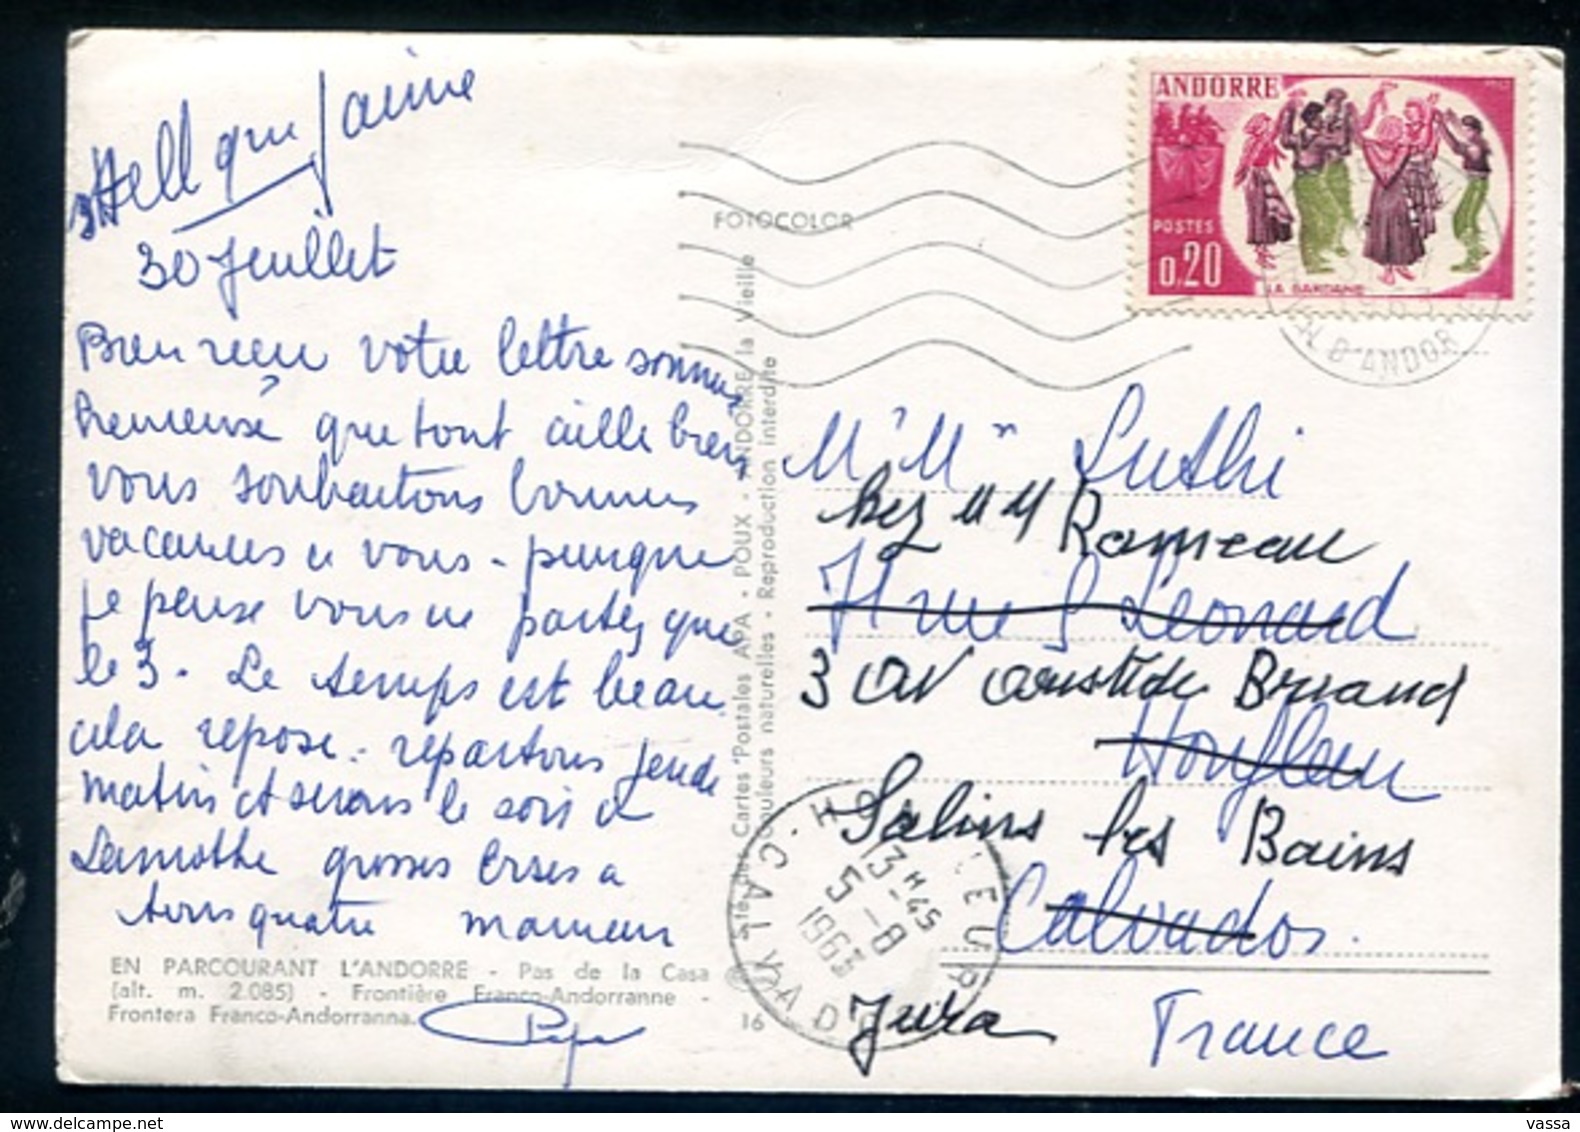 Hell que j'aime
30 Juillet
Bien reçu votre lettre sommes
heureuse que tout aille bien
vous souhaitons bonnes
vacances a vous - puisque
je pense vous ne partez que
le 3. Le temps est beau
cela repose. repartons jeudi
matin et serons le soir a
Lamothe grosses bises a
tous quatre maman
Pepe
EN PARCOURANT L'ANDORRE - Pas de la Casa
(alt. m. 2.085) - Frontière Franco-Andorranne -
Frontera Franco-Andorranna.
16
FOTOCOLOR
Sté. des Cartes Postales APA - POUX - ANDORRE la Vieille
Couleurs naturelles - Reproduction interdite
ANDORRE
POSTES
0,20
LA SARDANE
D'ANDOR
Mr Mme Luthi
chez Mr Rameau
rue S Leonard
3 av aristide Briand
Honfleur
Salins les Bains
Calvados.
Jura France
HONFLEUR
13H45
5-8
1963
CALVADOS
vassa